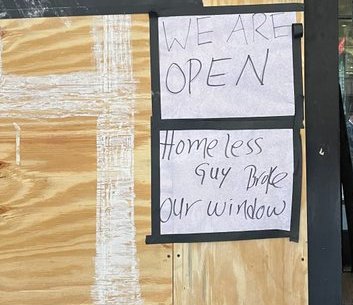 WE ARE
OPEN
Homeless
Guy Broke
our window